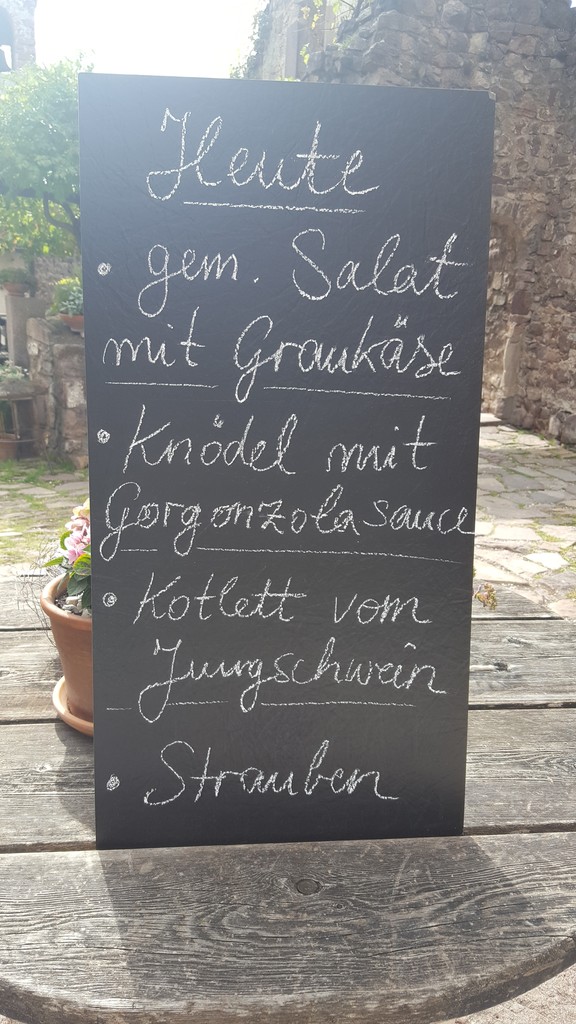 Heute
• gem. Salat
mit Graukäse
• Knödel mit
Gorgonzolasauce
• Kotlett vom
Jungschwein
• Strauben